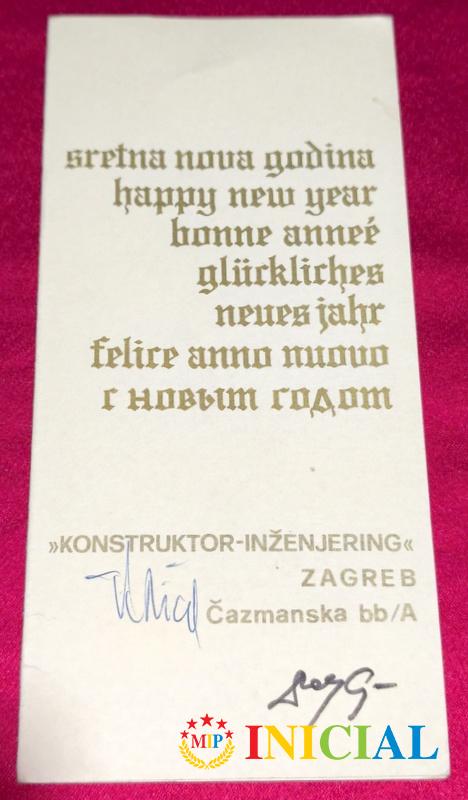 sretna nova godina
happy new year
bonne anneé
glückliches
neues jahr
felice anno nuovo
с новым годом
»KONSTRUKTOR-INŽENJERING«
ZAGREB
Čazmanska bb/A
MIP INICIAL